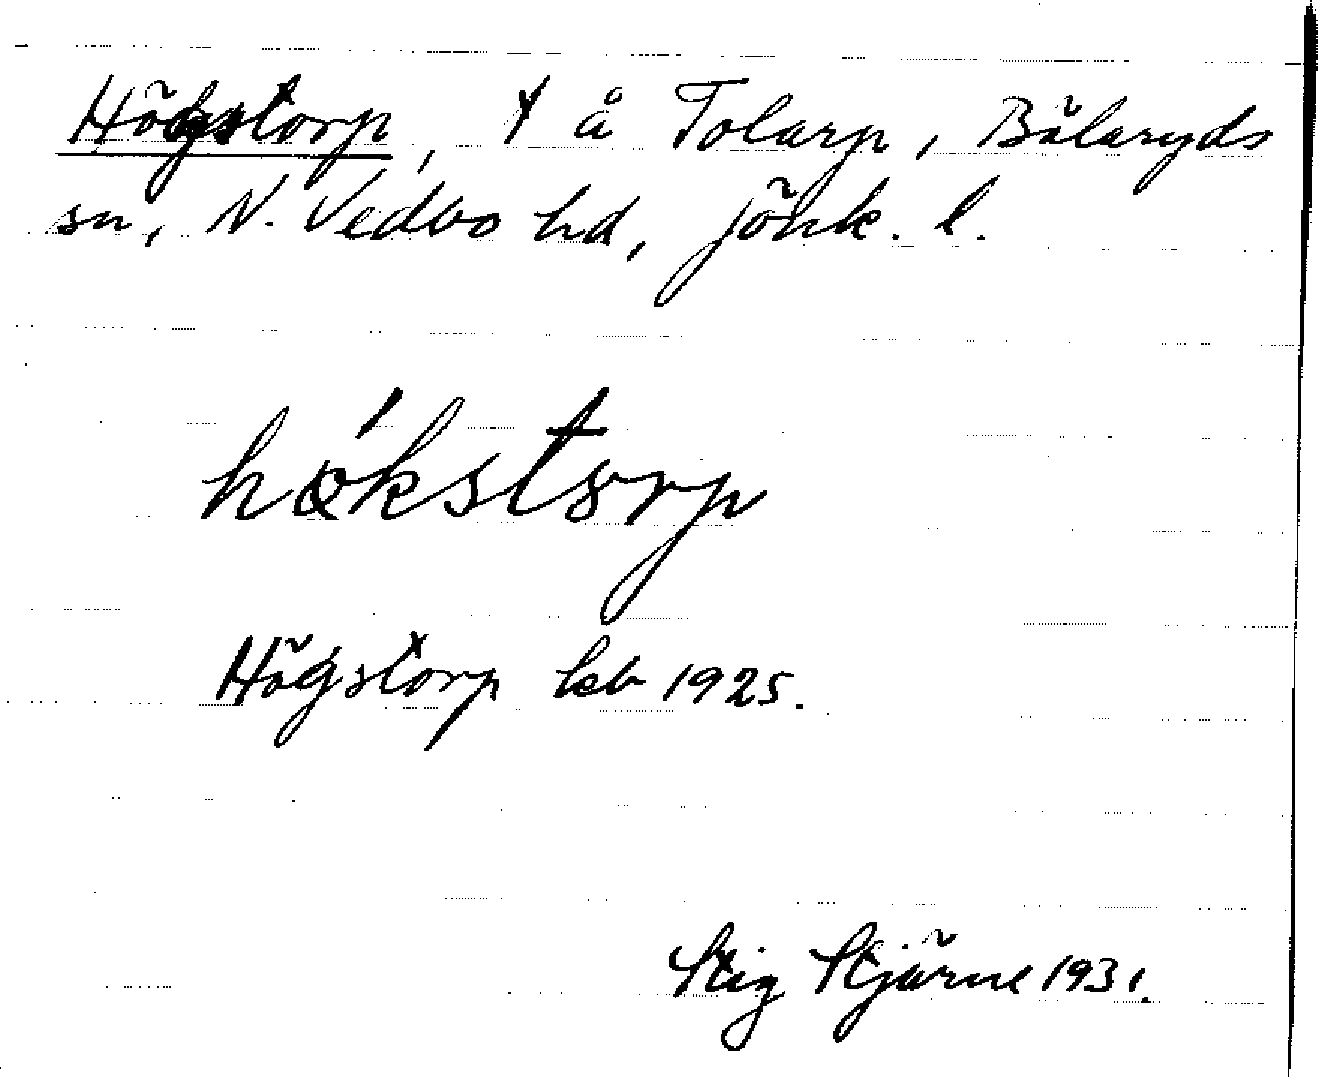 Högstorp, t å Tolarp, Bälaryds
sn, N. Vedbo hd, Jönk. l.
hǿkstorp
Högstorp lsb 1925.
Stig Stjärne 1931.